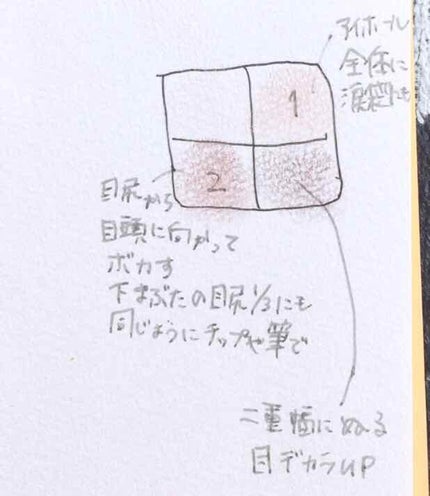 アイホール
全体に
涙袋にも
1
2
目尻から
目頭に向かって
ボカす
下まぶたの目尻1/3にも
同じようにチップや筆で
二重幅にぬる
目ヂカラUP